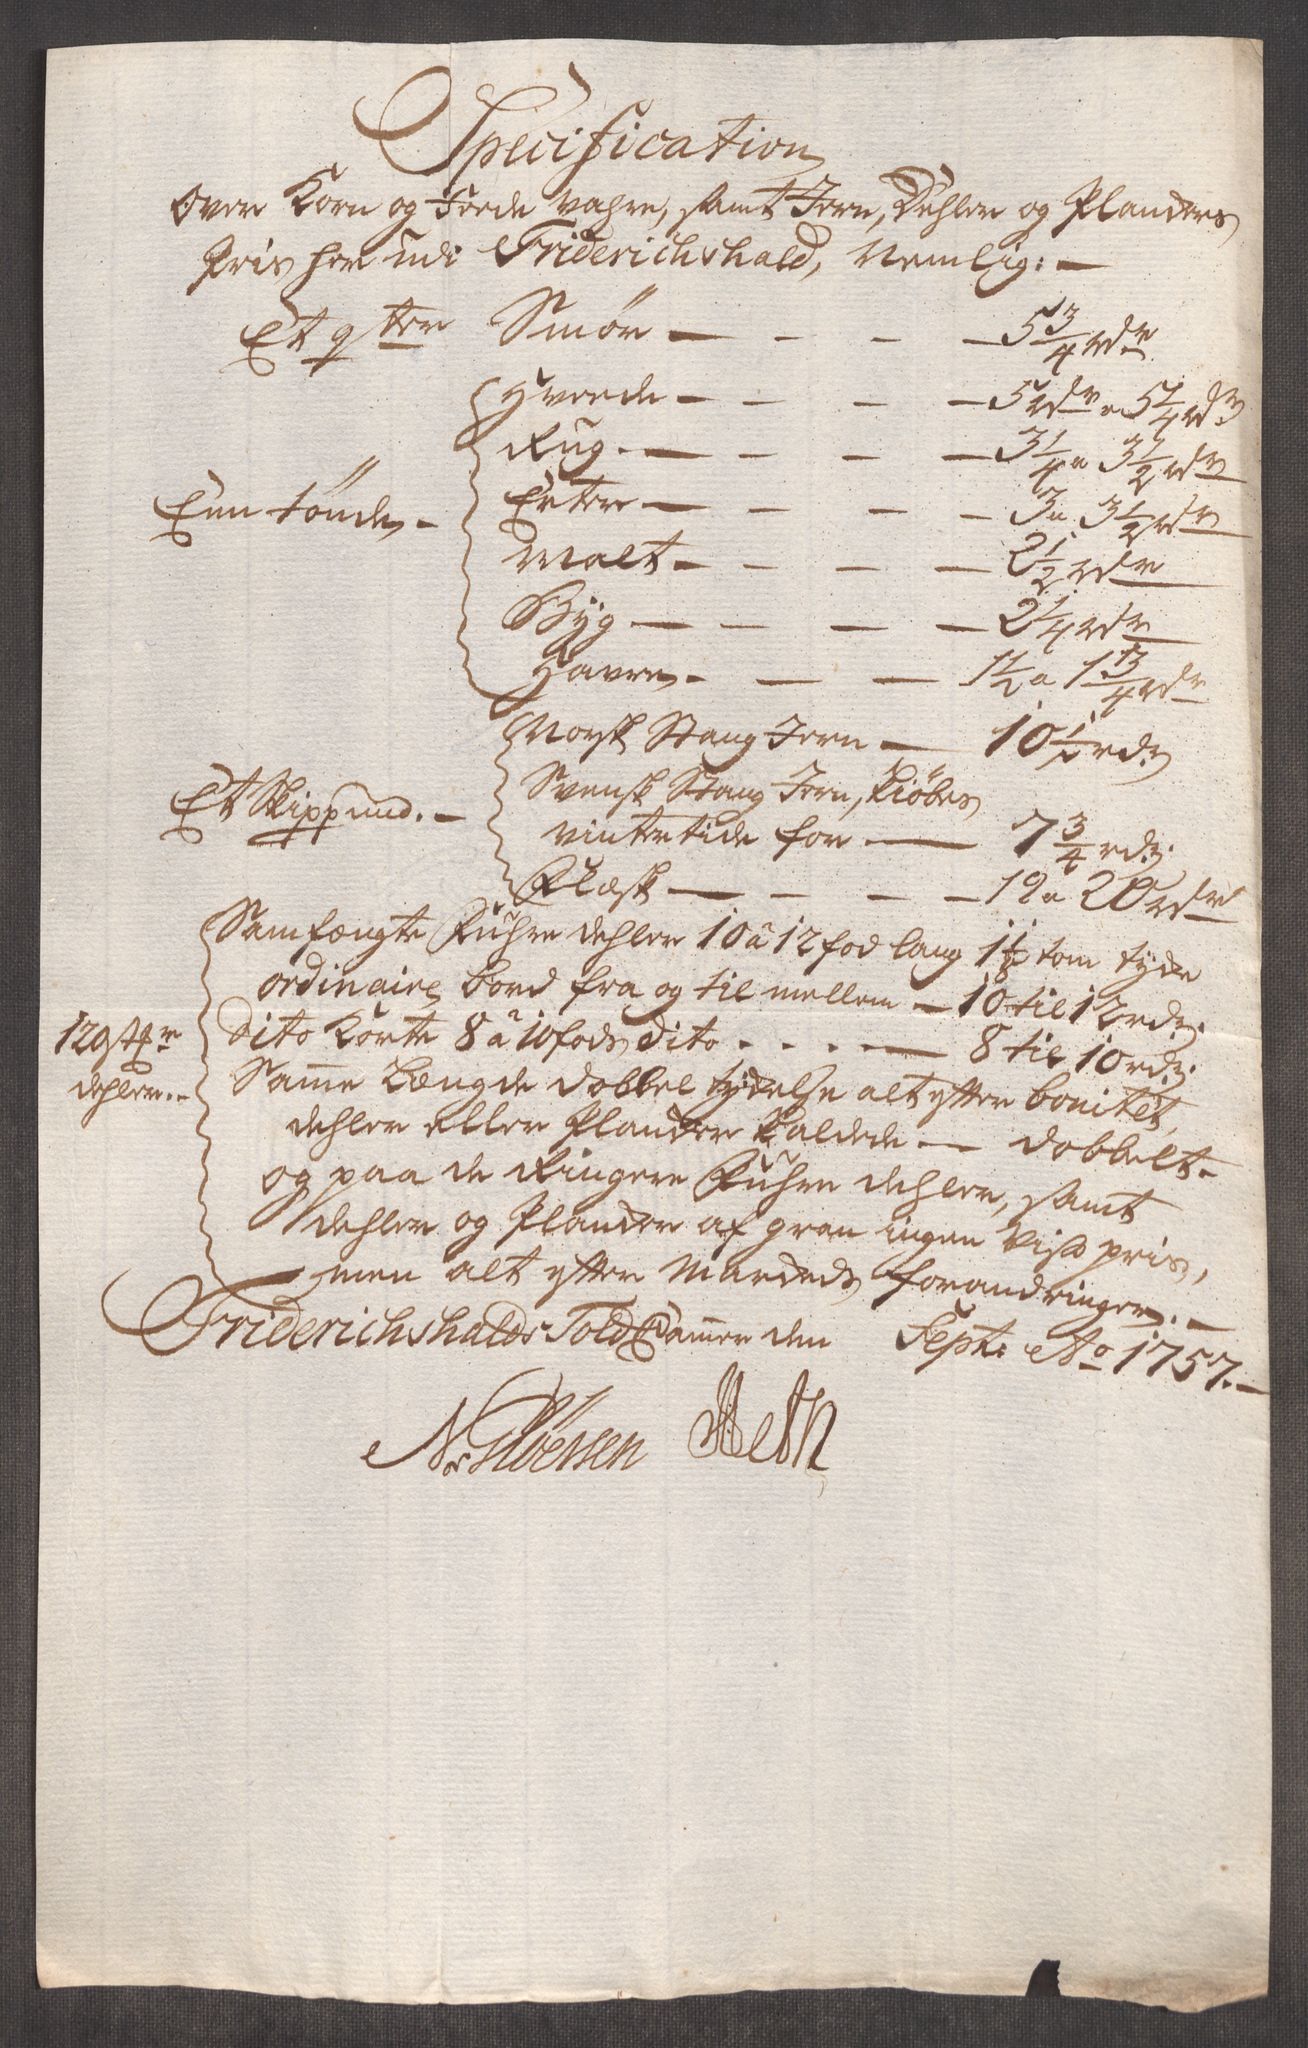 Specification
Over Korn og Feede Vahre, samt Jern, Dehler og Planckers
Pris her udi Friderichshald, Nemlig: —
Et qter Smør — 5 3/4 rdr
Hvede — 5 rdr a 5 1/4 rdr
Rug — 3 1/4 a 3 1/2 rdr
Enn tønde — Erter — 3 a 3 1/2 rdr
Malt — 2 1/2 rdr
Byg — 2 1/4 rdr
Havre — 1 1/2 a 1 3/4 rdr
Norsk Stang Jern — 10 1/2 rdr
Et Skippund. — Svensk Stang Jern, kiöbes
vintertide for — 7 3/4 rdr
Flæsk — 19 a 20 rdr
Samfængte Fuhre dehler 10 à 12 fod lang 1 1/2 tom tyde
ordinaire bord fra og til mellem — 10 til 12 rdr
120 stkr dito korte 8 a 10 fods dito — 8 til 10 rdr
dehler. Samme Længde dobbel tydelse alt efter bonitet,
dehler eller Plancker kaldede — dobbelt.
og paa de Ringere Fuhre dehler, samt
dehler og Plancker af gran ingen Viss pris,
men alt efter Marckeds forandringer. —
Friderichshalds Told Cammer den Sept: Ao 1757. —